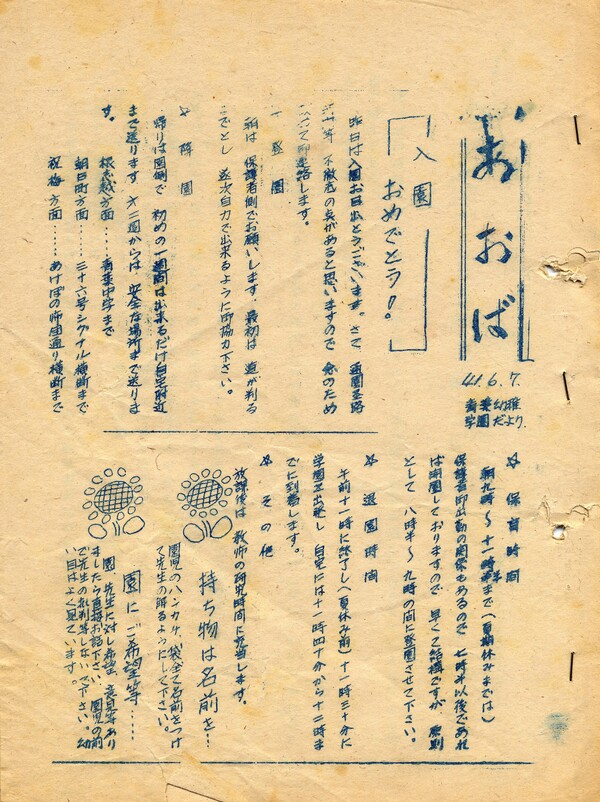 あおば
41.6.7.
青葉幼稚
学園だより
入園
おめでとう!。
昨日は入園お目出とうございます。さて 通園経路
等 不徹底の点があると思いますので 念のため
御連絡します。
登園
朝は 保護者側でお願いします。最初は 道が判る
までとし 逐次自力で出来るように御協力下さい。
☆ 降園
帰りは園側で 初めの一週間は出来るだけ自宅附近
まで送ります 第二週からは、安全な場所まで送りま
す。
根志越方面……青葉中学まで
朝日町方面……三十六号シグナル横断まで
祝梅方面……あけぼの師団通り横断まで
☆ 保育時間
朝九時~十一時半まで(夏期休みまでは)
保護者御出勤の関係もあるので 七時半以後であれ
ば開園しておりますので 早くて結構ですが 原則
として 八時半~九時の間に登園させて下さい。
☆ 退園時間
午前十一時に終了し(夏休み前)十一時三十分に
学園を出発し 自宅には十一時四十分から十二時ま
でに到着します。
☆ その他
放課後は 教師の研究時間に充当します。
持ち物は名前を…
園児のハンカチ、袋全て名前をつけ
て先生の解るようにして下さい。
園にご希望等……
園、先生に対し希望、意見等あり
ましたら直接お話下さい。園児の前
で先生の批判等しないで下さい。幼
い目はよく見ています。